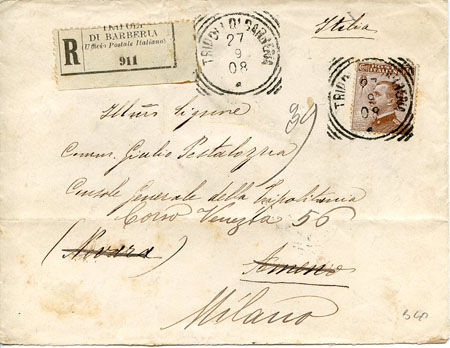 TRIPOLI
DI BARBERIA
Ufficio Postale Italiano
R
911
TRIPOLI DI BARBERIA
27
9
08
Italia
TRIPOLI DI BARBERIA
Illmo Signore
Comm. Giulio Pestalozza
Console Generale della Tripolitania
Corso Venezia 56
(Novara)
Milano